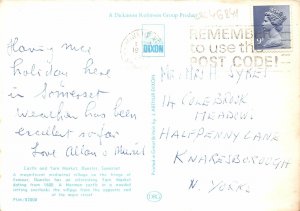 A Dickinson Robinson Group Product
REMEMBER
to use the
POST CODE!
DIXON
9P
Having nice
holiday here
in Somerset
weather has been
excellent so far
Love Allan & Muriel
Mr & Mrs H Sykes
14 Colebrook
Meadow
Halfpenny Lane
Knaresborough
N. Yorks
Castle and Yarn Market, Dunster, Somerset
A magnificent medieval village on the fringe of
Exmoor, Dunster has an interesting Yarn Market
dating from 1609. A Norman castle in a wooded
setting overlooks the village from the opposite end
of the main street